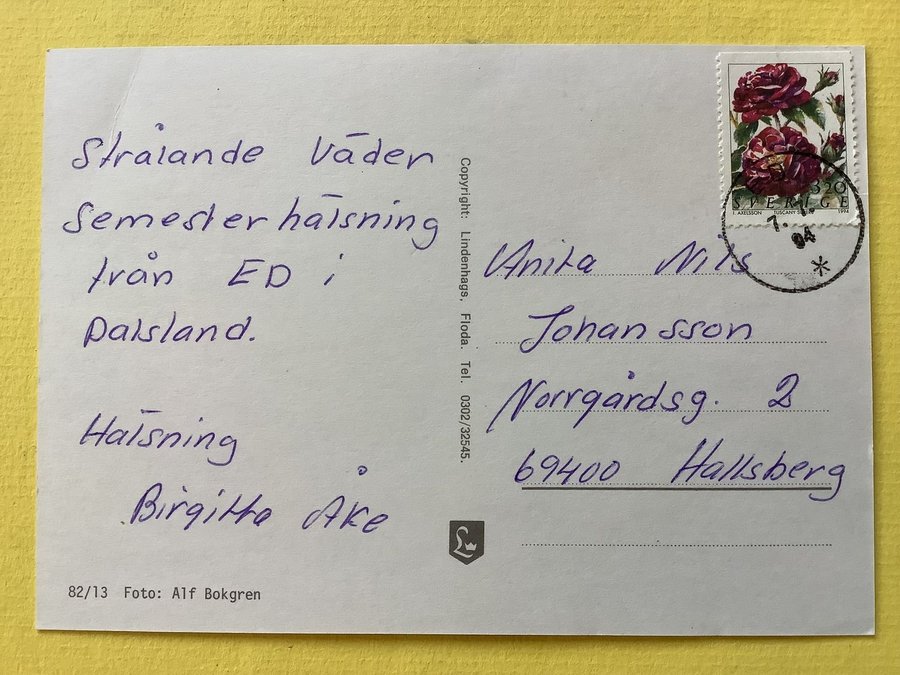 Strålande Väder
Semesterhälsning
från ED i
Dalsland.
Hälsning
Birgitta Åke
82/13 Foto: Alf Bokgren
Copyright: Lindenhags, Floda. Tel. 0302/32545.
L
320
SVERIGE
I. AXELSSON TUSCANY 1994
94
Anita Nils
Johansson
Norrgårdsg. 2
69400 Hallsberg